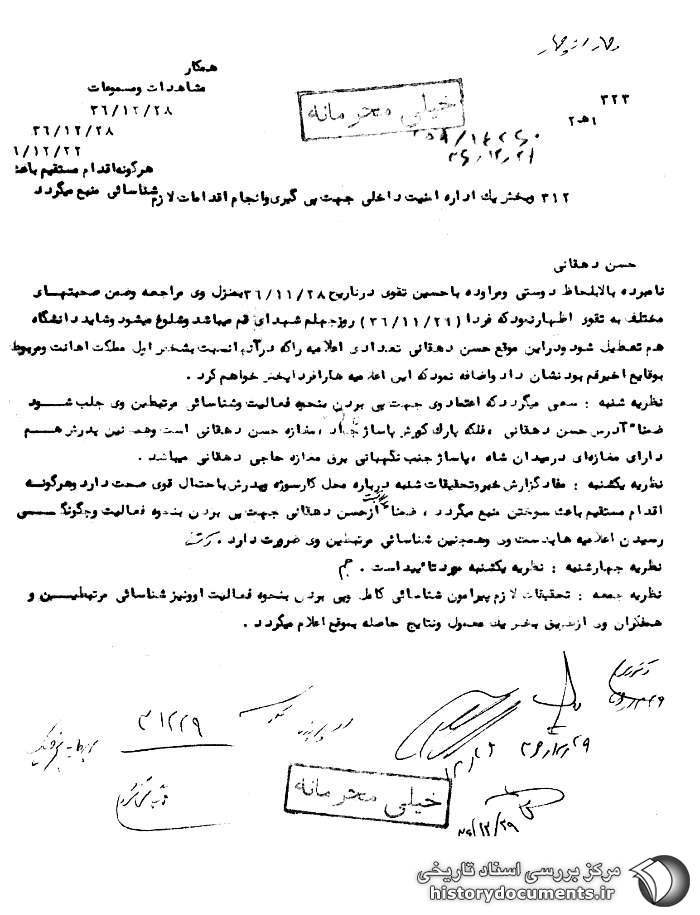 همکار
مشاهدات ومسموعات
خیلی محرمانه
۳۲۳
۱هـ۲
۳۶/۱۲/۲۸
۳۶/۱۲/۲۸
۳۶/۱۲/۲۱
۱/۱۲/۲۲
هرگونه اقدام مستقیم باعث
شناسائی منبع میگردد
۳۱۲ وبخش یک اداره امنیت داخلی جهت پی گیری وانجام اقدامات لازم
حسن دهقانی
نامبرده بالا بلحاظ دوستی ومراوده با حسین تقوی درتاریخ ۳۶/۱۱/۲۸ بمنزل وی مراجعه وضمن صحبتهای
مختلف به تقوی اظهارنمود که فردا (۳۶/۱۱/۲۹) روزچهلم شهدای قم میباشد وشلوغ میشود وشاید دانشگاه
هم تعطیل شود ودراین موقع حسن دهقانی تعدادی اعلامیه راکه درآن نسبت بشخص اول مملکت اهانت ومربوط
بوقایع اخیرقم بود نشان داد واضافه نمود که این اعلامیه هارافردا پخش خواهم کرد .
نظریه شنبه : سعی میگردد که اعتماد وی جهت پی بردن بنحوه فعالیت وشناسائی مرتبطین وی جلب شود
ضمنا" آدرس حسن دهقانی ، فلکه پارک کورش پاساژ ، مغازه حسن دهقانی است وهمچنین پدرش هم
دارای مغازه‌ای درمیدان شاه ،پاساژ جنب نگهبانی برق مغازه حاجی دهقانی میباشد .
نظریه یکشنبه : مفاد گزارش خبر وتحقیقات شنبه درباره محل کارسوژه وپدرش باحتمال قوی صحت دارد وهرگونه
اقدام مستقیم باعث سوختن منبع میگردد ، ضمنا" ازحسن دهقانی جهت پی بردن بنحوه فعالیت وچگونگی
رسیدن اعلامیه ها بدست وی وهمچنین شناسائی مرتبطین وی ضرورت دارد .
نظریه چهارشنبه : نظریه یکشنبه مورد تائید است .
نظریه جمعه : تحقیقات لازم پیرامون شناسائی کامل وپی بردن بنحوه فعالیت اوونیز شناسائی مرتبطین و
همفکران وی ازطریق بخش یک معمول ونتایج حاصله بموقع اعلام میگردد .
۳۱۲۲۹
۳۶/۱۲/۲۹
خیلی محرمانه
۳۶/۱۲/۲۹
مرکز بررسی اسناد تاریخی
historydocuments.ir